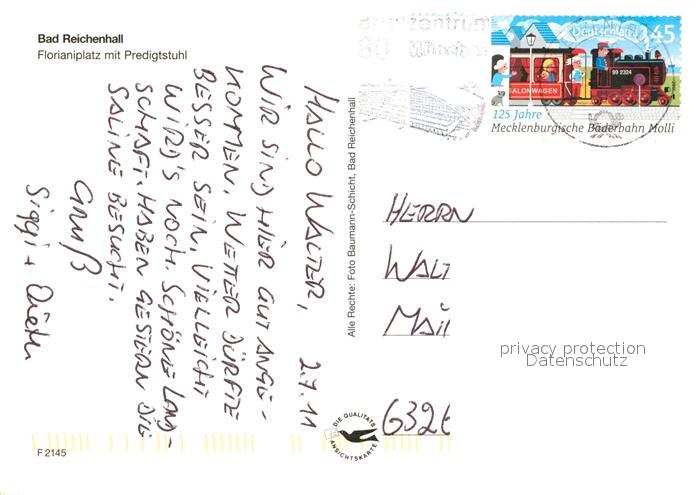 Bad Reichenhall
Florianiplatz mit Predigtstuhl
HALLO WALTER,
2.7.11
WIR SIND HIER GUT ANGE-
KOMMEN. WETTER DÜRFTE
BESSER SEIN, VIELLEICHT
WIRD'S NOCH. SCHÖNE LAND-
SCHAFT. HABEN GESTERN DIE
SALINE BESUCHT.
GRUß
Siggi +
Alle Rechte: Foto Baumann-Schicht, Bad Reichenhall
DIE QUALITÄTS
ANSICHTSKARTE
F 2145
Briefzentrum
80 München
Deutschland 45
SALONWAGEN
99 2324
125 Jahre
Mecklenburgische Bäderbahn Molli
HERRN
WALT
MAI
6326
privacy protection
Datenschutz